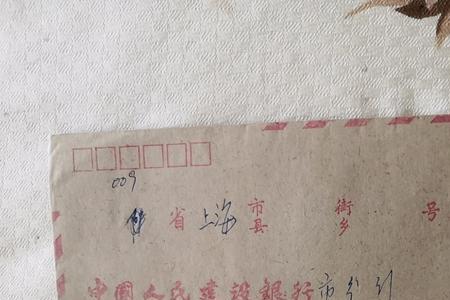 009
省 上海 市县 街乡 号
中国人民建设银行市分行